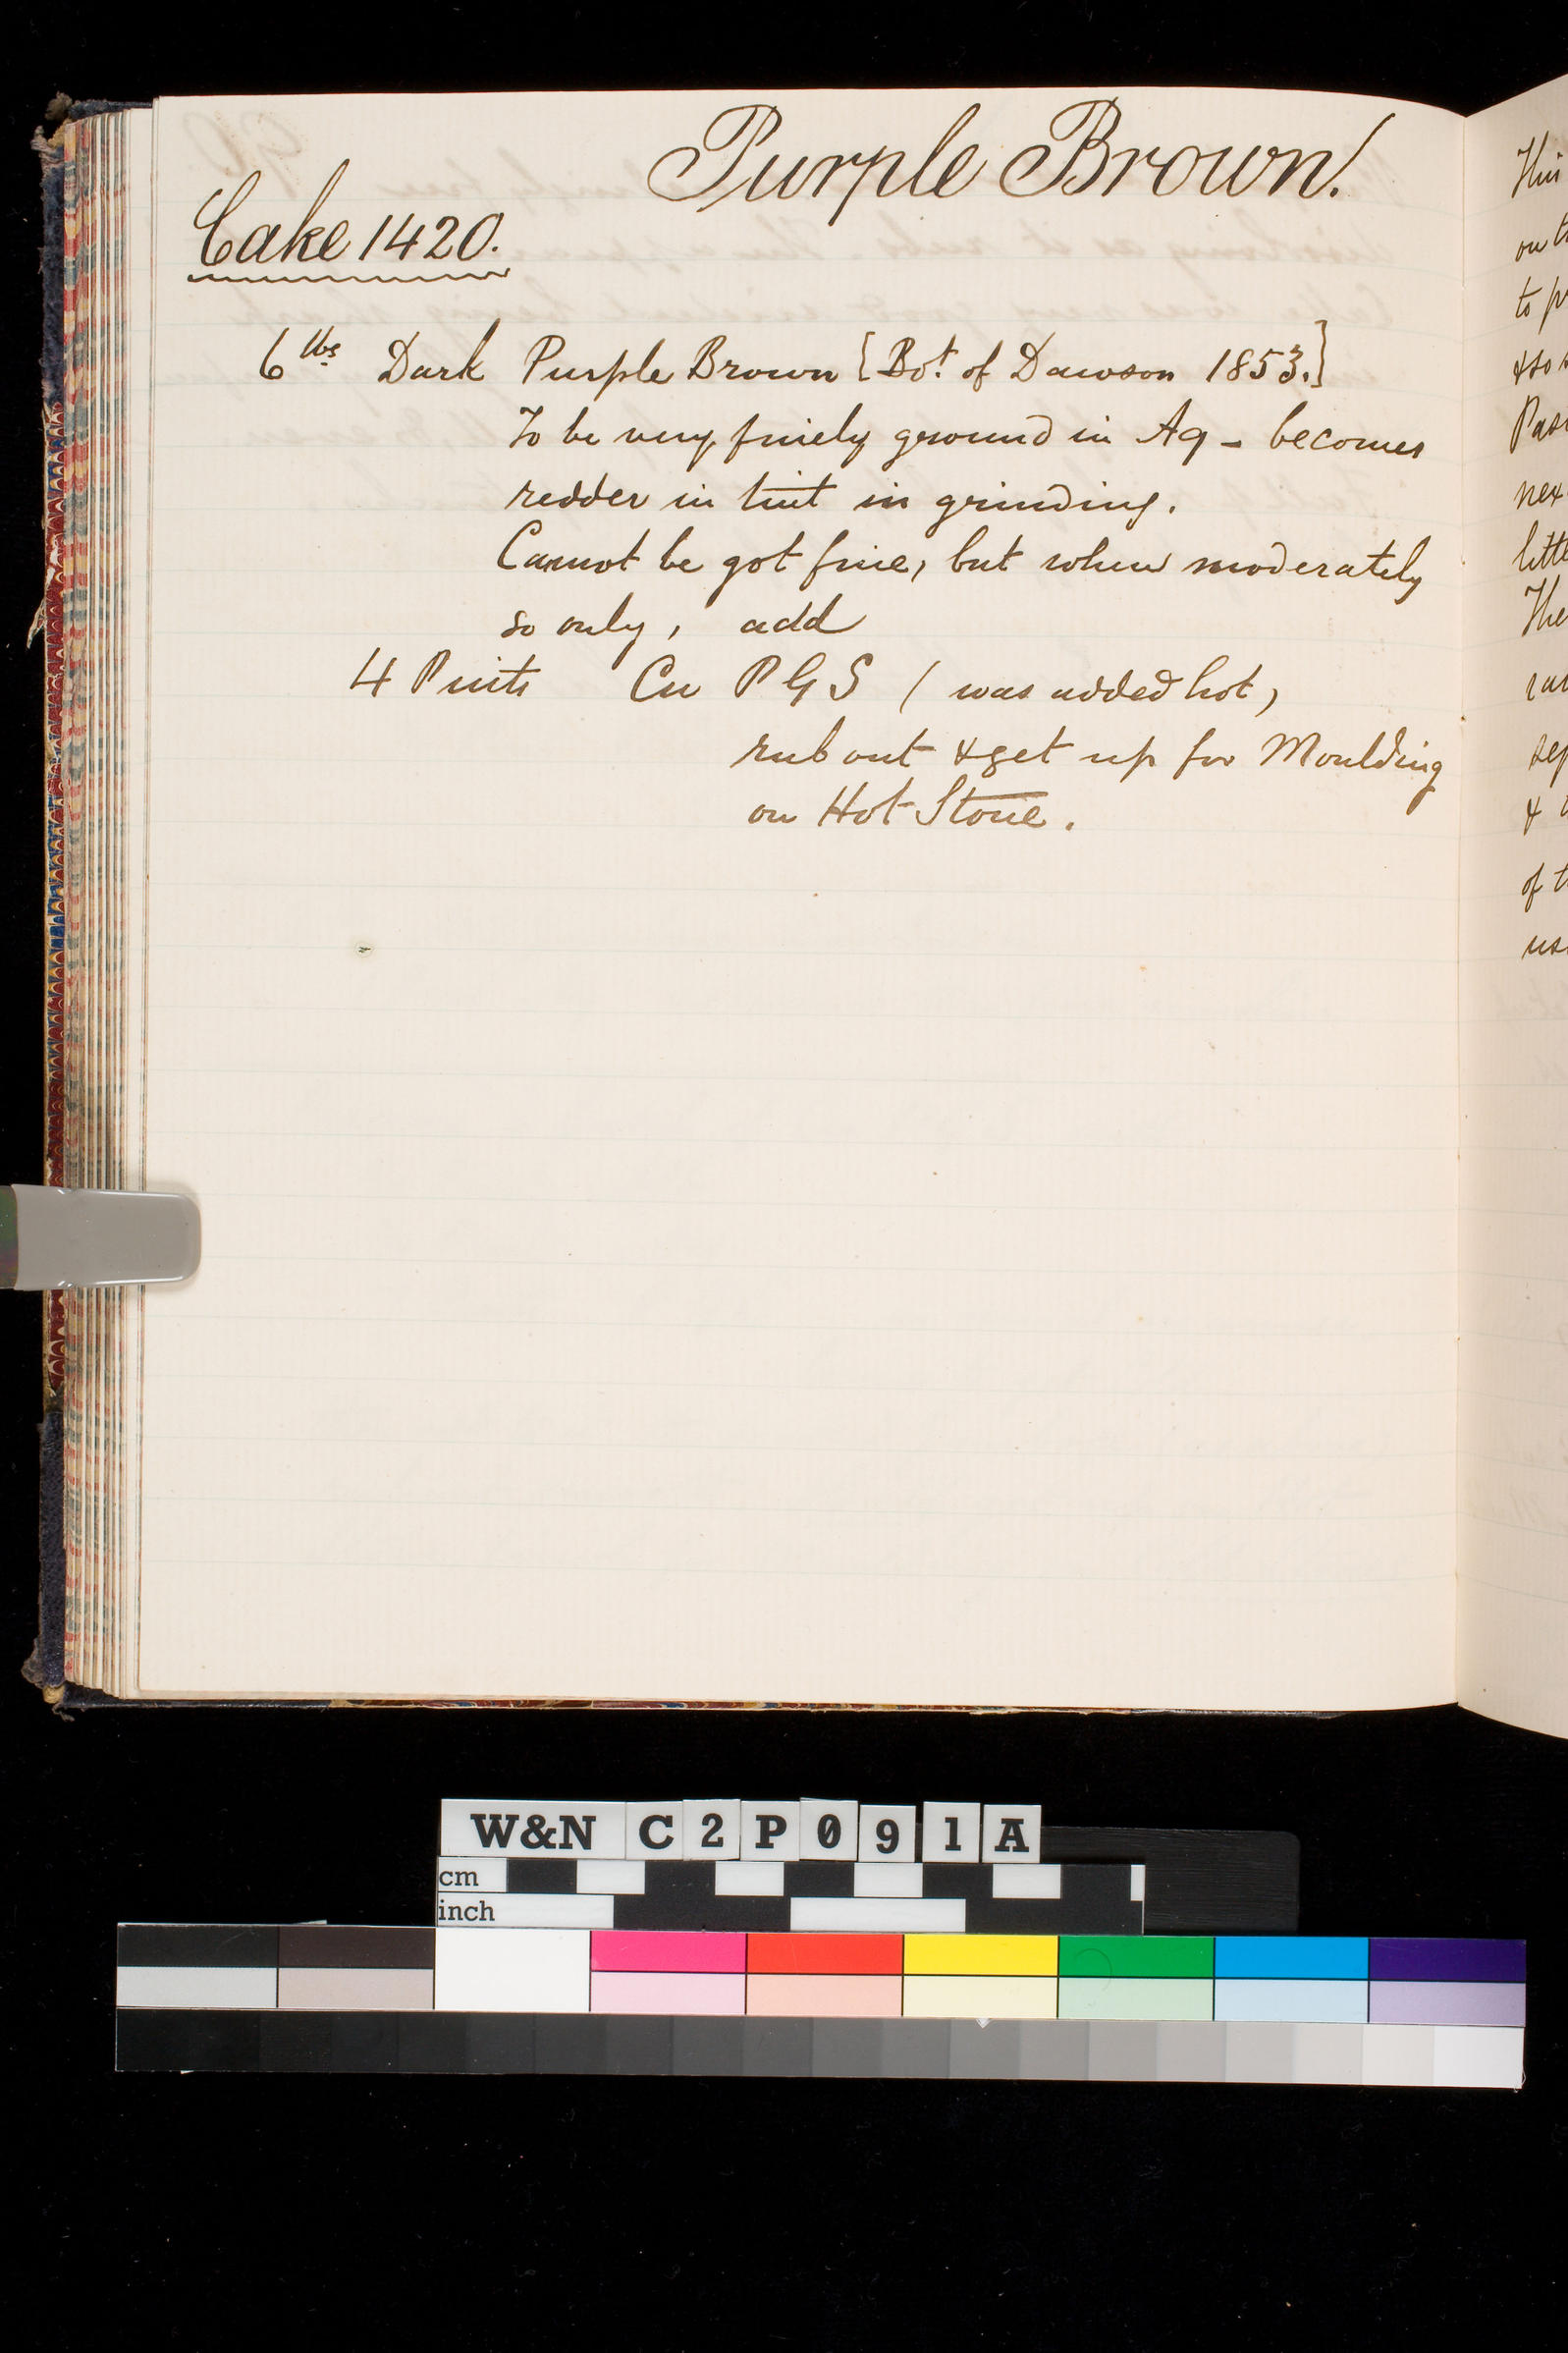 Purple Brown.
Cake 1420.
6 lbs Dark Purple Brown [Bot. of Dawson 1853.]
To be very finely ground in Aq - becomes
redder in tint in grinding.
Cannot be got fine, but when moderately
so only, add
4 Pints Cu P G S ( was added hot,
rub out & get up for Moulding
on Hot Stone.
This
on
to
& so
next
The
of
W&N C2P091A
cm
inch